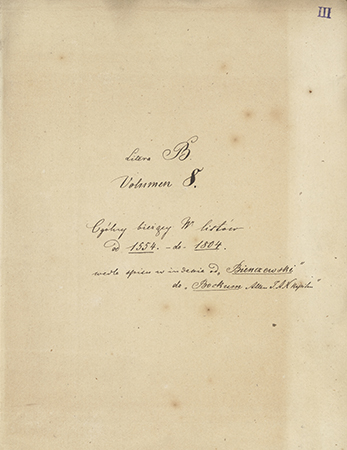 III
Litera B.
Volumen 8.
Ogólny bieżący Nr listów
od 1554. - do - 1804.
wedle spisu w indexie od „Bienczewski”
do „Bockum